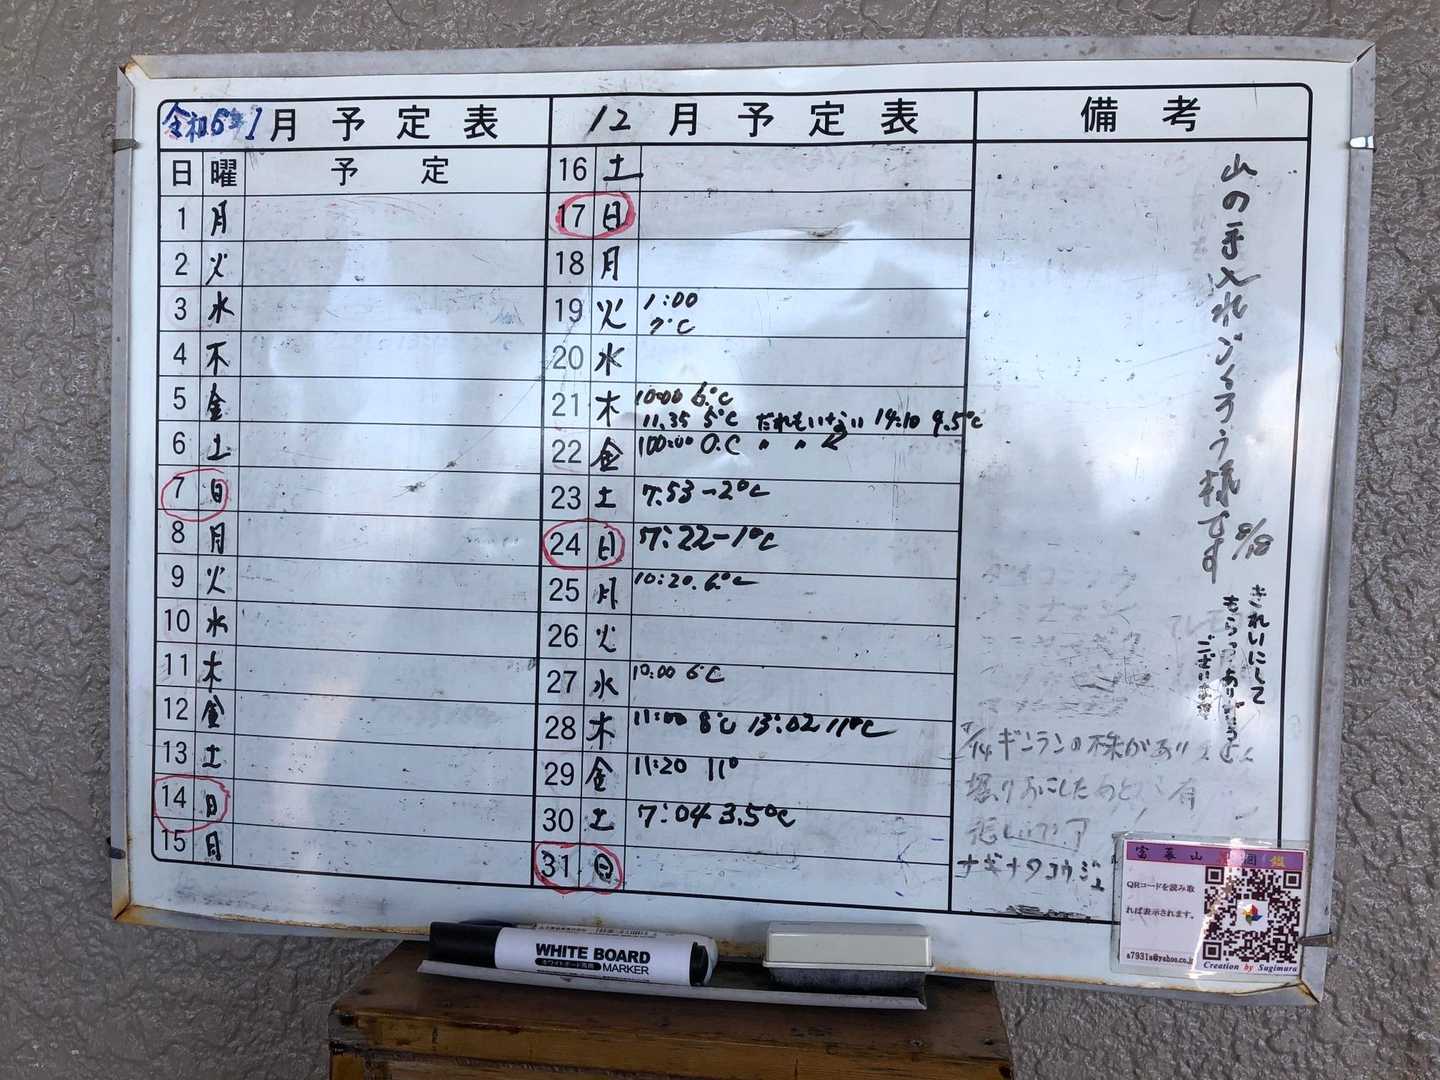 令和6年1月予定表
日 曜 予定
1 月
2 火
3 水
4 木
5 金
6 土
7 日
8 月
9 火
10 水
11 木
12 金
13 土
14 日
15 月
12月予定表
16 土
17 日
18 月
19 火 1:00
7°C
20 水
21 木 10:00 6°C
11.35 5°C だれもいない 14:10 9.5°C
22 金 100:00 0.C 〃 〃
23 土 7:53 -2°C
24 日 7:22 -1°C
25 月 10:20. 6°C
26 火
27 水 10:00 6°C
28 木 11:00 8°C 13:02 11°C
29 金 11:20 11°
30 土 7:04 3.5°C
31 日
備考
山の手入れごくろう様です
8/18
きれいにして
もらってありがとう
ございます
ギンランの株があり
掘りおこしたあと 有
悲しいです
ナギナタコウジュ
富幕山 図鑑
QRコードを読み取
れば表示されます。
a7931s@yahoo.co.j
Creation by Sugimura
WHITE BOARD
ホワイトボード専用 MARKER